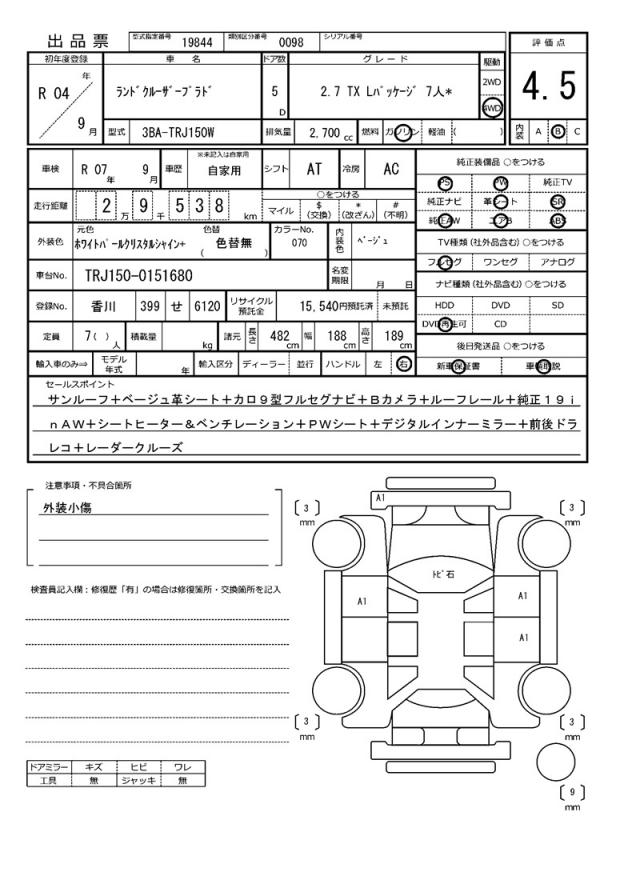 出品票 型式指定番号 19844 類別区分番号 0098 シリアル番号
評価点
4.5
初年度登録 車名 ドア数 グレード 駆動
R 04 年 9 月
ﾗﾝﾄﾞｸﾙｰｻﾞｰﾌﾟﾗﾄﾞ 5 D 2.7 TX Lﾊﾟｯｹｰｼﾞ 7人*
2WD
4WD
型式 3BA-TRJ150W 排気量 2,700 cc 燃料 ガソリン 軽油 ( ) 内装 A B C
車検 R 07 年 9 月 車歴 ※未記入は自家用 自家用 シフト AT 冷房 AC
走行距離 2 万 9 千 5 3 8 km
○をつける
マイル $(交換) *(改ざん) #(不明)
外装色 元色 ﾎﾜｲﾄﾊﾟｰﾙｸﾘｽﾀﾙｼｬｲﾝ+ 色替 ( 色替無 ) カラーNo. 070 内装色 ﾍﾞｰｼﾞｭ
車台No. TRJ150-0151680 名変期限 月 日
登録No. 香川 399 せ 6120 リサイクル預託金 15,540円預託済 未預託
定員 7( ) 人 積載量 kg 諸元 長さ 482 cm 幅 188 cm 高さ 189 cm
輸入車のみ⇒ モデル年式 年 輸入区分 ディーラー 並行 ハンドル 左 右
純正装備品 ○をつける
PS PW 純正TV
純正ナビ 革シート SR
純正AW エアB ABS
TV種類(社外品含む) ○をつける
フルセグ ワンセグ アナログ
ナビ種類(社外品含む) ○をつける
HDD DVD SD
DVD再生可 CD
後日発送品 ○をつける
新車保証書 車輌取説
セールスポイント
サンルーフ+ベージュ革シート+カロ9型フルセグナビ+Bカメラ+ルーフレール+純正19i
nAW+シートヒーター&ベンチレーション+PWシート+デジタルインナーミラー+前後ドラ
レコ+レーダークルーズ
注意事項・不具合箇所
外装小傷
検査員記入欄:修復歴「有」の場合は修復箇所・交換箇所を記入
ドアミラー キズ ヒビ ワレ
工具 無 ジャッキ 無
A1
[3] mm
[3] mm
ﾄﾋﾞ石
A1
A1
A1
[3] mm
[3] mm
[9] mm